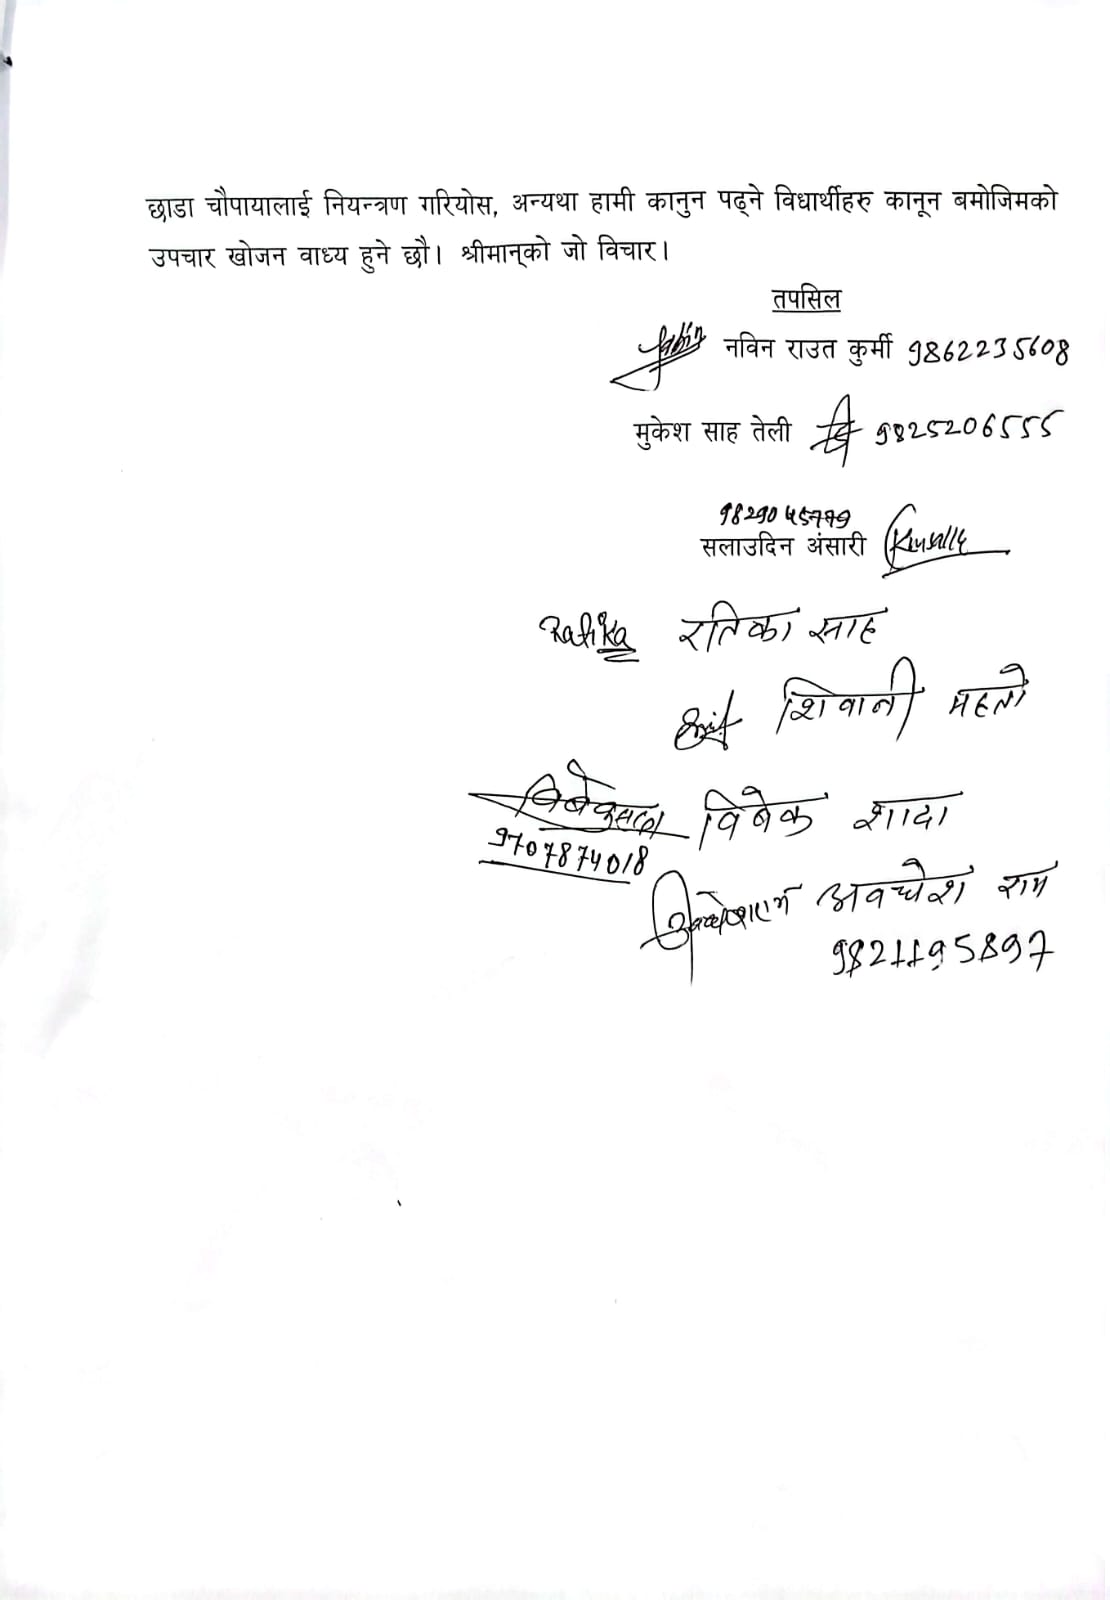 छाडा चौपायालाई नियन्त्रण गरियोस, अन्यथा हामी कानुन पढ्ने विधार्थीहरु कानून बमोजिमको
उपचार खोजन वाध्य हुने छौ। श्रीमान्को जो विचार।
तपसिल
नविन राउत कुर्मी 9862235608
मुकेश साह तेली 9825206555
9829045779
सलाउदिन अंसारी
Ratika रतिका साह
शिवानी महतो
विवेक सदा विबेक शादा
9707874018
अवधेश राम
9821195897